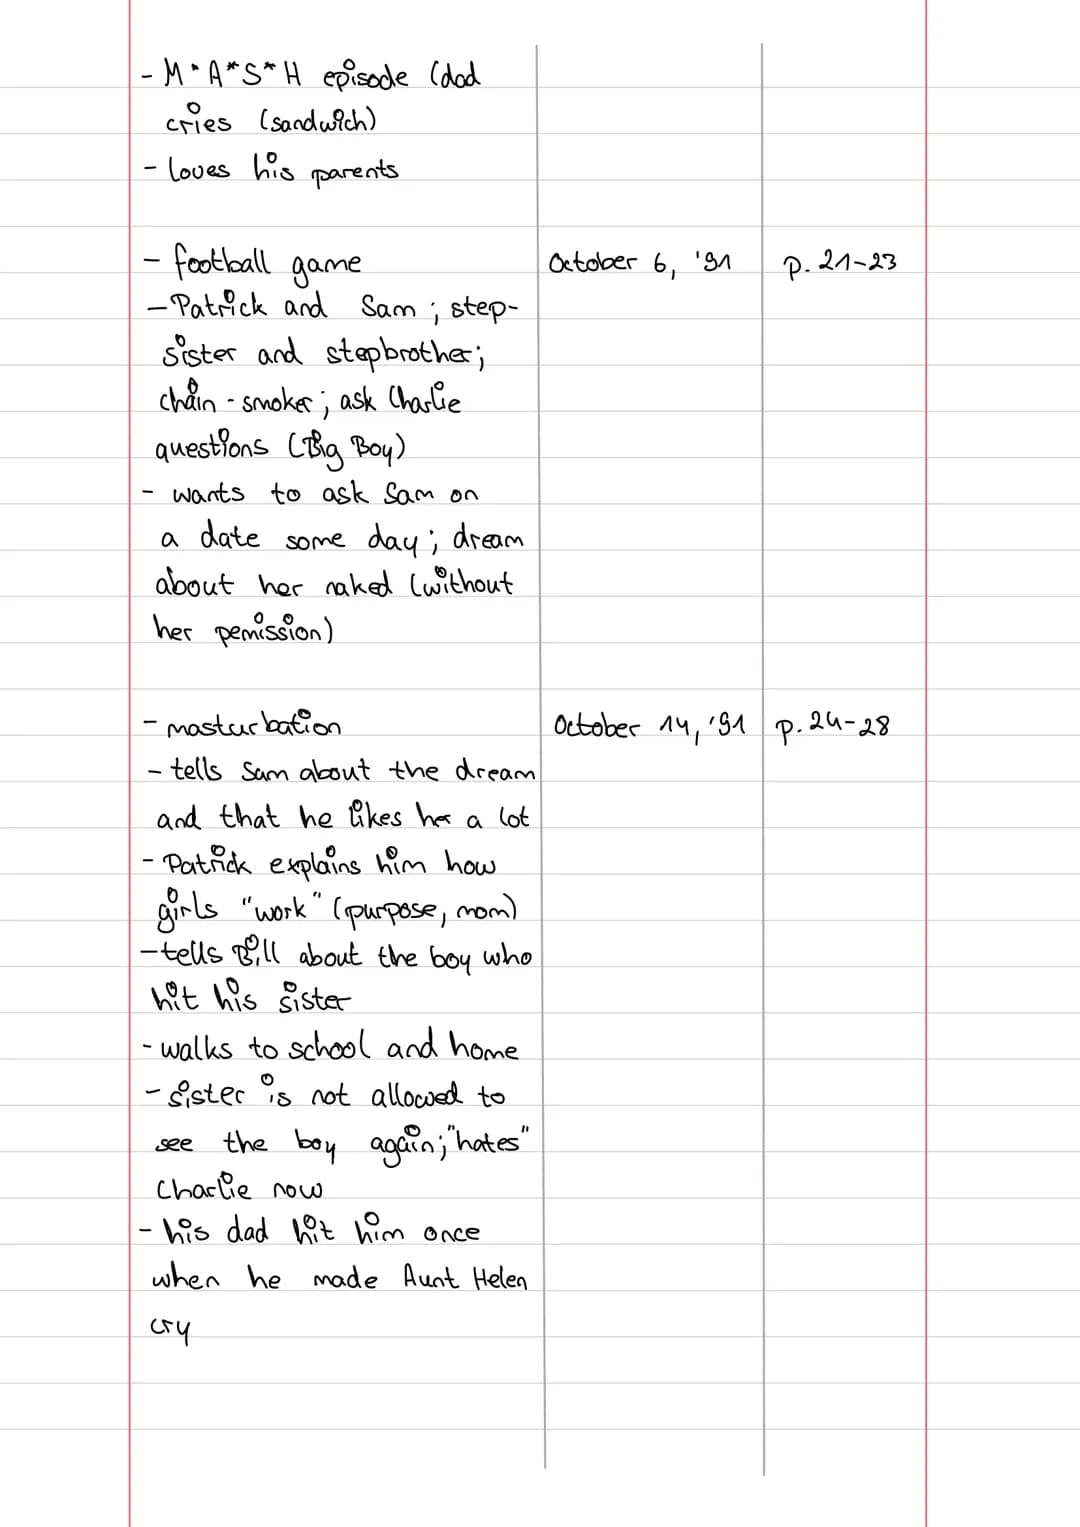 - M*A*S*H episode (dad
cries (sandwich)
- loves his parents
- football game October 6, '91 p. 21-23
- Patrick and Sam ; step-
sister and stepbrother;
chain - smoker ; ask Charlie
questions (Big Boy)
- wants to ask Sam on
a date some day ; dream
about her naked (without
her pemission)
- masturbation October 14, '91 p. 24-28
- tells Sam about the dream
and that he likes her a lot
- Patrick explains him how
girls "work" (purpose, mom)
- tells Bill about the boy who
hit his sister
- walks to school and home
- sister is not allowed to
see the boy again; "hates"
Charlie now
- his dad hit him once
when he made Aunt Helen
cry